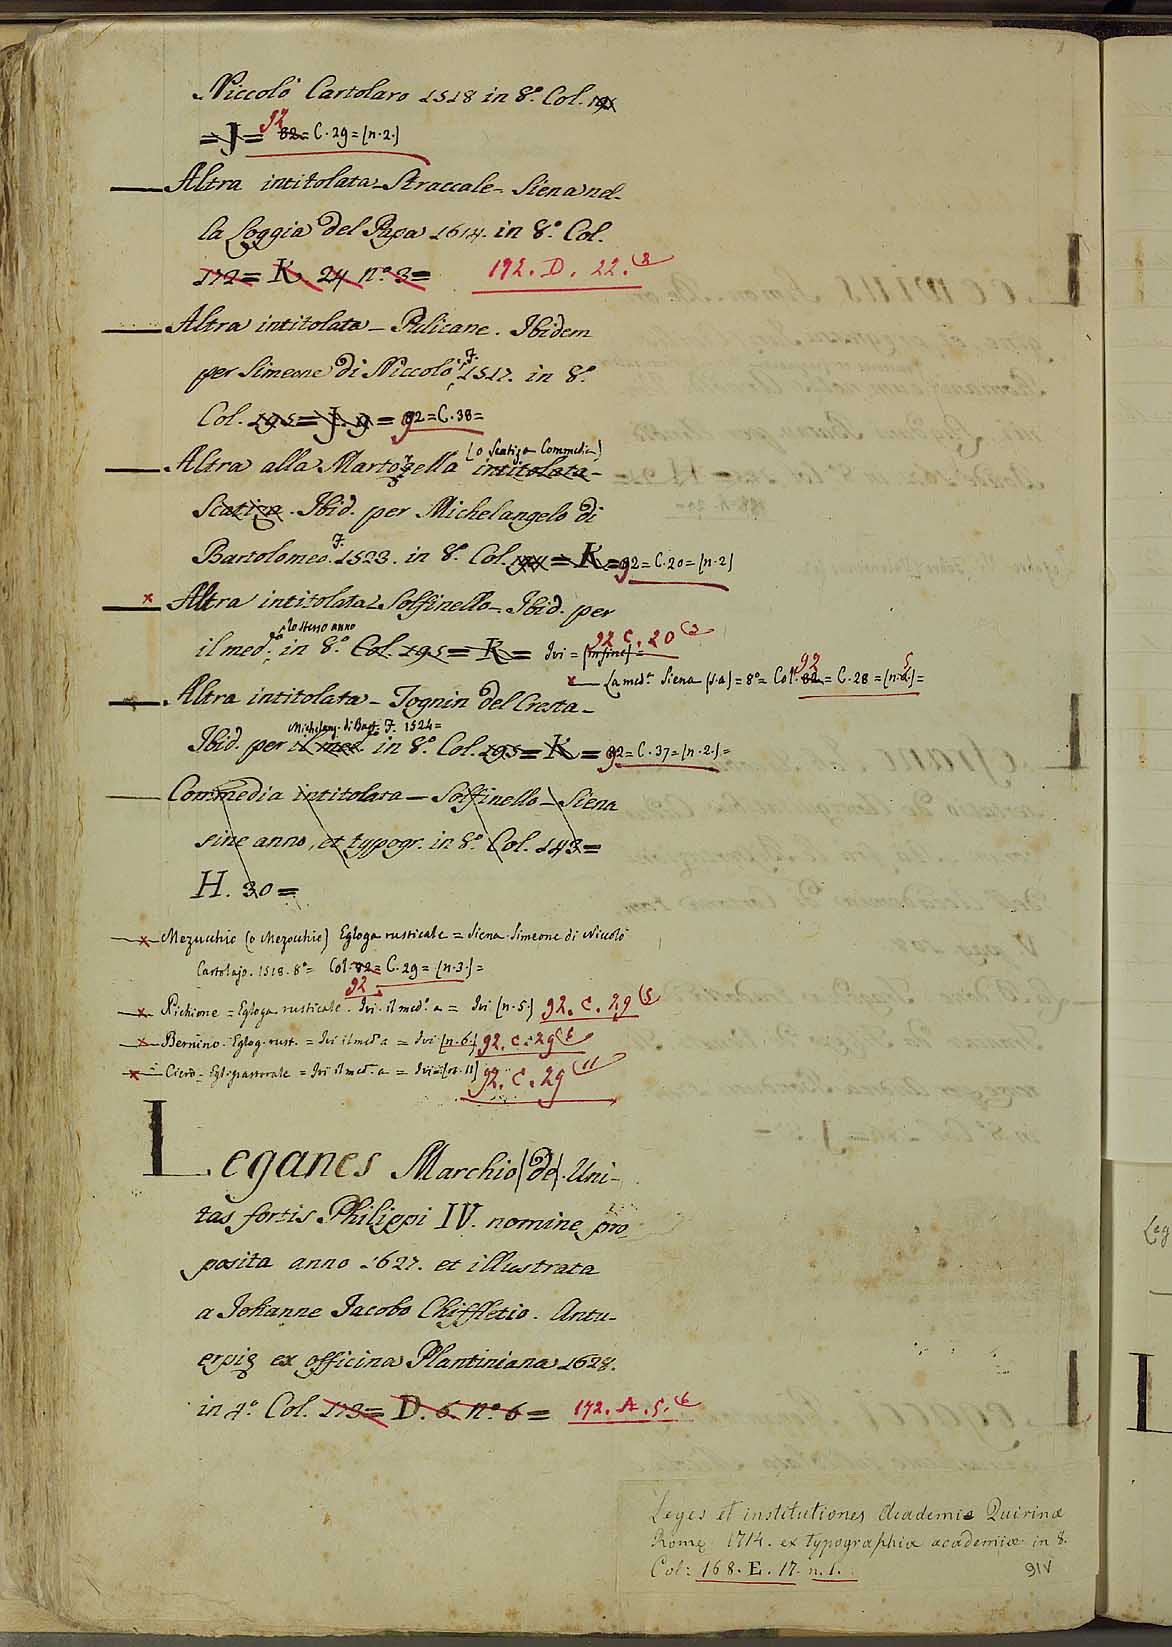 Niccolò Cartolaro 1518 in 8.º Col.
= J = 92 82 = C. 29 = (n. 2.)
Altra intitolata Straccale - Siena nel-
la Loggia del Papa 1614. in 8.º Col.
172 = K 24 n.º 3 = 192. D. 22. (3
Altra intitolata - Pelicane. Ibidem
per Simeone di Niccolò F. 1517. in 8.º
Col. 195 = J. 9 = 92 = C. 38 =
(o Scatizza Commedia)
Altra alla Martorella intitolata -
Scatizza. Ibid. per Michelangelo di
Bartolomeo F. 1523. in 8.º Col. = K = 92 = C. 20 = (n. 2)
× Altra intitolata Solfinello - Ibid. per
lo stesso anno
il med.º in 8.º Col. 195 = K = Ivi = (in fine) = 92 C. 20 (3
× La med.ª Siena (s. a) = 8º = Col. 82 92 = C. 28 = (n. 2.) = 5
Altra intitolata - Tognin del Cresta -
Michelang. di Bart. F. 1524 =
Ibid. per il med. in 8.º Col. 195 = K = 92 = C. 37 = (n. 2.) =
Commedia intitolata - Solfinello - Siena
sine anno, et typogr. in 8.º Col. 143 =
H. 30 =
× Mezucchio (o Mezocchio) Egloga rusticale = Siena. Simeone di Niccolò
Cartolajo. 1518. 8º = Col. 82 = C. 29 = (n. 3.) =
92
× Pichione = Egloga rusticale. Ivi. il med.º a = Ivi (n. 5.) 92. C. 29 (5
× Bernino. Eglog. rust. = Ivi il med.º a = Ivi (n. 6.) 92. C. 29 (6
× Ciero - Egl. pastorale = Ivi il med.º a = Ivi = (n. 11) 92. C. 29 (11
Leganes Marchio (de). Uni-
tas fortis Philippi IV. nomine pro
posita anno 1627. et illustrata
a Johanne Jacobo Chiffletio. Antu-
erpię ex officina Plantiniana 1628.
in 4.º Col. 173 = D. 6. n.º 6 = 172. A. 5. (6
Leges et institutiones Academiæ Quirinæ
Romę 1714. ex typographia academiæ in 8.
Col: 168. E. 17. n. 1.
91v
Leg
L